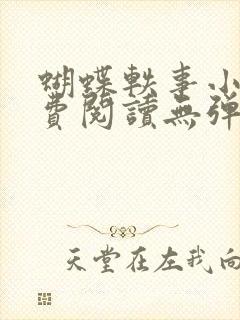 蝴蝶軼事小
費閱讀無彈
天堂在左我向